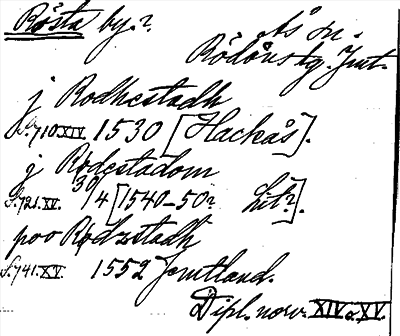 Rösta by.?
Ås sn.
Rödöns tg. Jmt.
j Rodhestadh
S. 710. XIV. 1530 [Hackås].
j Rødestadom
S. 721. XV. 30/4 [1540-50? hit?].
poo Rødzstadh
S. 741. XV. 1552 Jemtland.
Dipl. norv. XIV o. XV.